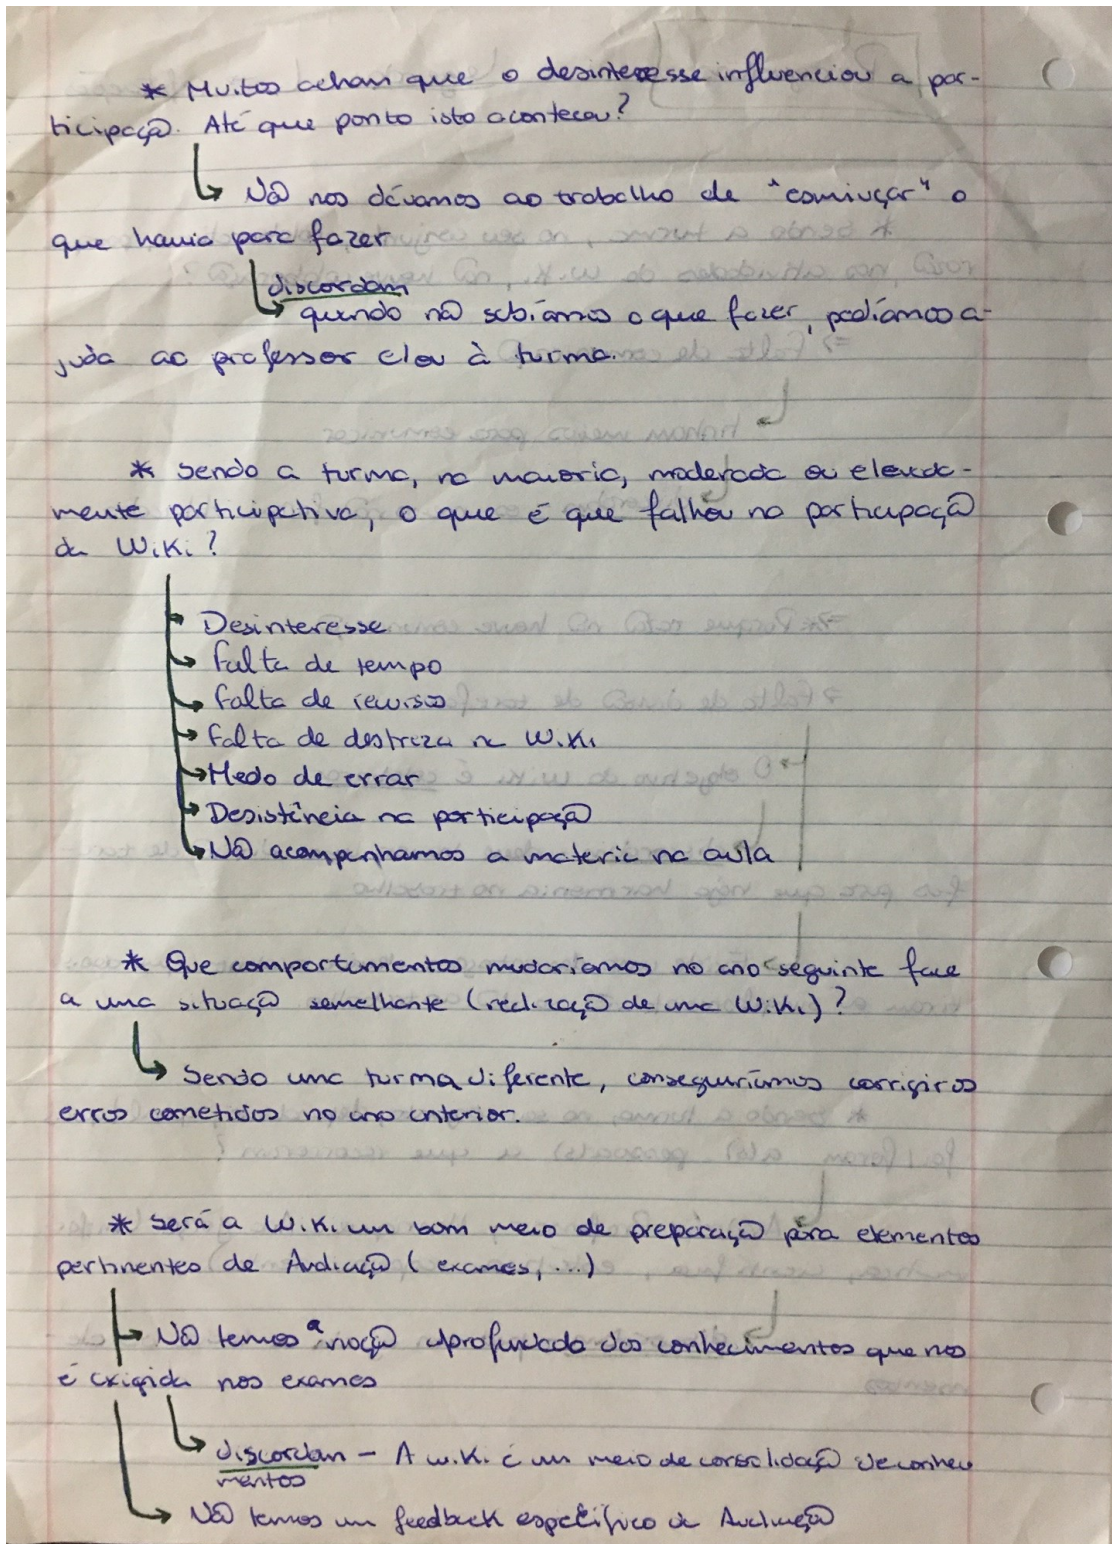 * Muitos acham que o desinteresse influenciou a par-
ticipação. Até que ponto isto aconteceu?
Não nos dávamos ao trabalho de "esmiuçar" o
que havia para fazer
discordam
quando não sabíamos o que fazer, pedíamos a-
juda ao professor e/ou à turma.
* Sendo a turma, na maioria, moderada ou elevada-
mente participativa, o que é que falhou na participação
da Wiki?
Desinteresse
Falta de tempo
Falta de recursos
Falta de destreza na Wiki
Medo de errar
Desistência na participação
Não acompanhamos a materia na aula
* Que comportamentos mudaríamos no ano seguinte face
a uma situação semelhante (realização de uma Wiki)?
Sendo uma turma diferente, conseguiríamos corrigir os
erros cometidos no ano anterior.
* Será a Wiki um bom meio de preparação para elementos
pertinentes de Avaliação (exames, ...)
Não temos a noção aprofundada dos conhecimentos que nos
é exigida nos exames
discordam - A wiki é um meio de consolidação de conheci
mentos
Não temos um feedback específico de Avaliação